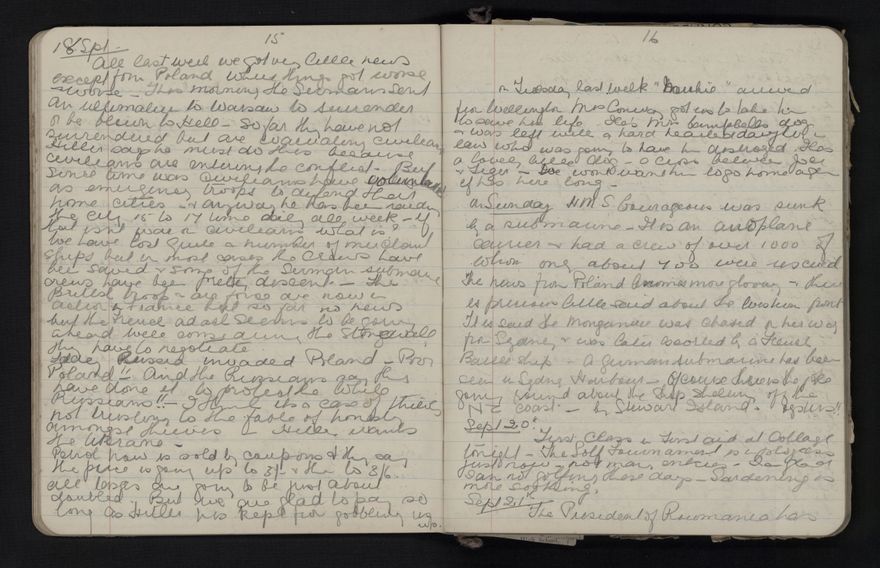 15
18 Sept -
All last week we got very little news
except from Poland where things got worse
& worse - This morning the Germans sent
an ultimatum to Warsaw to surrender
or be blown to Hell - So far they have not
surrendered but are evacuating civilians
Hitler says he must do this because
civilians are entering the conflict - But
since time was civilians have
as emergency troops to defend their
home cities - & anyway he has been raiding
the city 15 to 17 times daily all week - if
that isn't war on civilians what is?
We have lost quite a number of merchant
ships but in most cases the crews have
been saved & some of the German submarine
crews have been pretty descent - The
British troops & air force are now in
action in France but so far no news
but the French advance seems to be going
ahead well considering the strong wall
they have to negotiate
Later Russia invaded Poland - Poor
Poland!! And the Russians say this
have done it to protect the White
Russians!! - I think it's a case of thieves
not trusting to the fable of honest
amongst thieves - Hitler wants
the Ukraine -
Petrol now is sold by coupons & they say
the price is going up to 3/- & the to 3/6.
all taxes are going to be just about
doubled, But we are glad to pay so
long as Hitler is kept from gobbling us
up.
16
On Tuesday last week "Bauchie" arrived
from Wellington Mrs Conway got us to take him
to save his life. He's Mrs Campbells dog
& was left with a hard hearted daughter in
law who was going to have him destroyed. He's
a lovely little dog - a cross between Joes
& Tiger - We wont want him to go home again
if he's here long -
On Sunday H.M.S Courageous was sunk
by a submarine - It is an airoplane
carrier & had a crew of over 1000 of
whom only about 400 were rescued
The news from Poland is more gloomy & there
is precious little said about the Western front
It is said the Monganui was chased on her way
from Sydney & was later escorted by a French
Battleship - A German submarine has been
seen in Sydney Harbour - Of course there is the
going round about the ship shelling off the
N E coast - by Stewart Island.
Sept 20th
First Class in First aid at College
tonight - The Golf Tournament is in progress
just now - not many entries -
no golfing these days - Gardening is
more soothing.
Sept 21st
The President of Roumania has